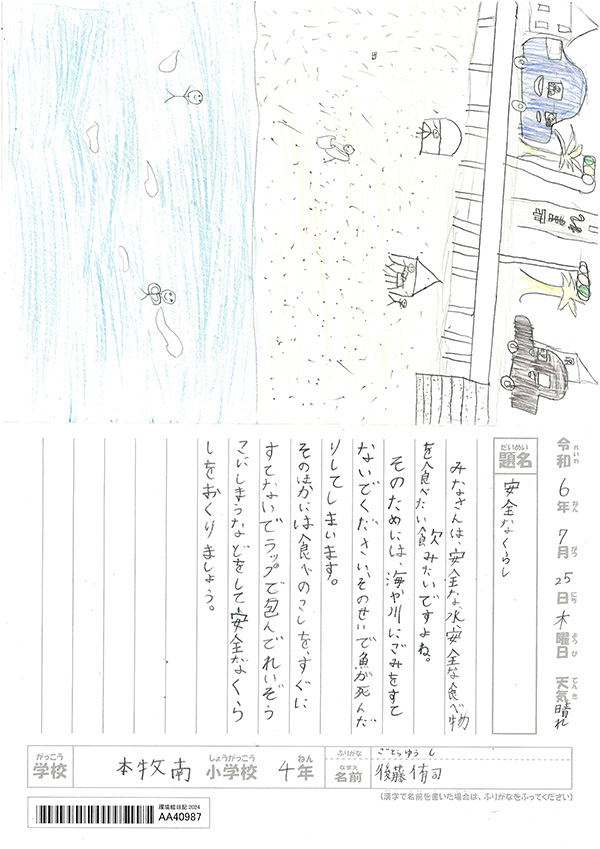 令和6年7月25日木曜日 天気晴れ
れいわ ねん がつ にち ようび てんき
だいめい
題名
安全なくらし
みなさんは、安全な水、安全な食べ物
を食べたい飲みたいですよね。
そのためには、海や川にごみをすて
ないでください、そのせいで魚が死んだ
りしてしまいます。
そのほかには食べのこしを、すぐに
すてないでラップで包んでれいぞう
こにしまうなどをして、安全なくら
しをおくりましょう。
がっこう しょうがっこう ねん
学校 本牧南 小学校 4年
ふりがな ごとうゆうし
なまえ
名前 後藤侑司
(漢字で名前を書いた場合は、ふりがなをふってください)
環境絵日記2024
AA40987